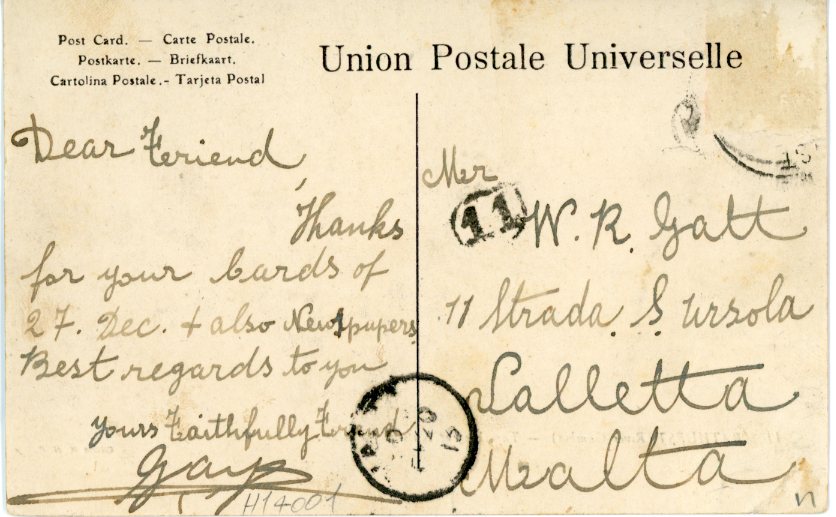 Post Card. — Carte Postale.
Postkarte. — Briefkaart.
Cartolina Postale.- Tarjeta Postal
Union Postale Universelle
Dear Feriend,
Thanks
for your Cards of
27. Dec. + also Newspapers
Best regards to you
yours Faithfully Feriend
H14001
Mer
11
W. R. Gatt
11 Strada S. Ursola
Valletta
Malta